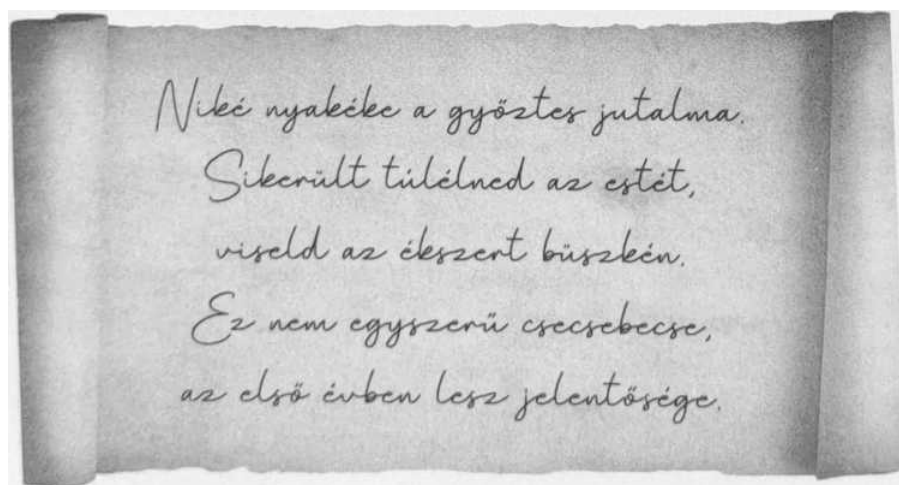 Niké nyakéke a győztes jutalma.
Sikerült túlélned az estét,
viseld az ékszert büszkén.
Ez nem egyszerű csecsebecse,
az első évben lesz jelentősége.